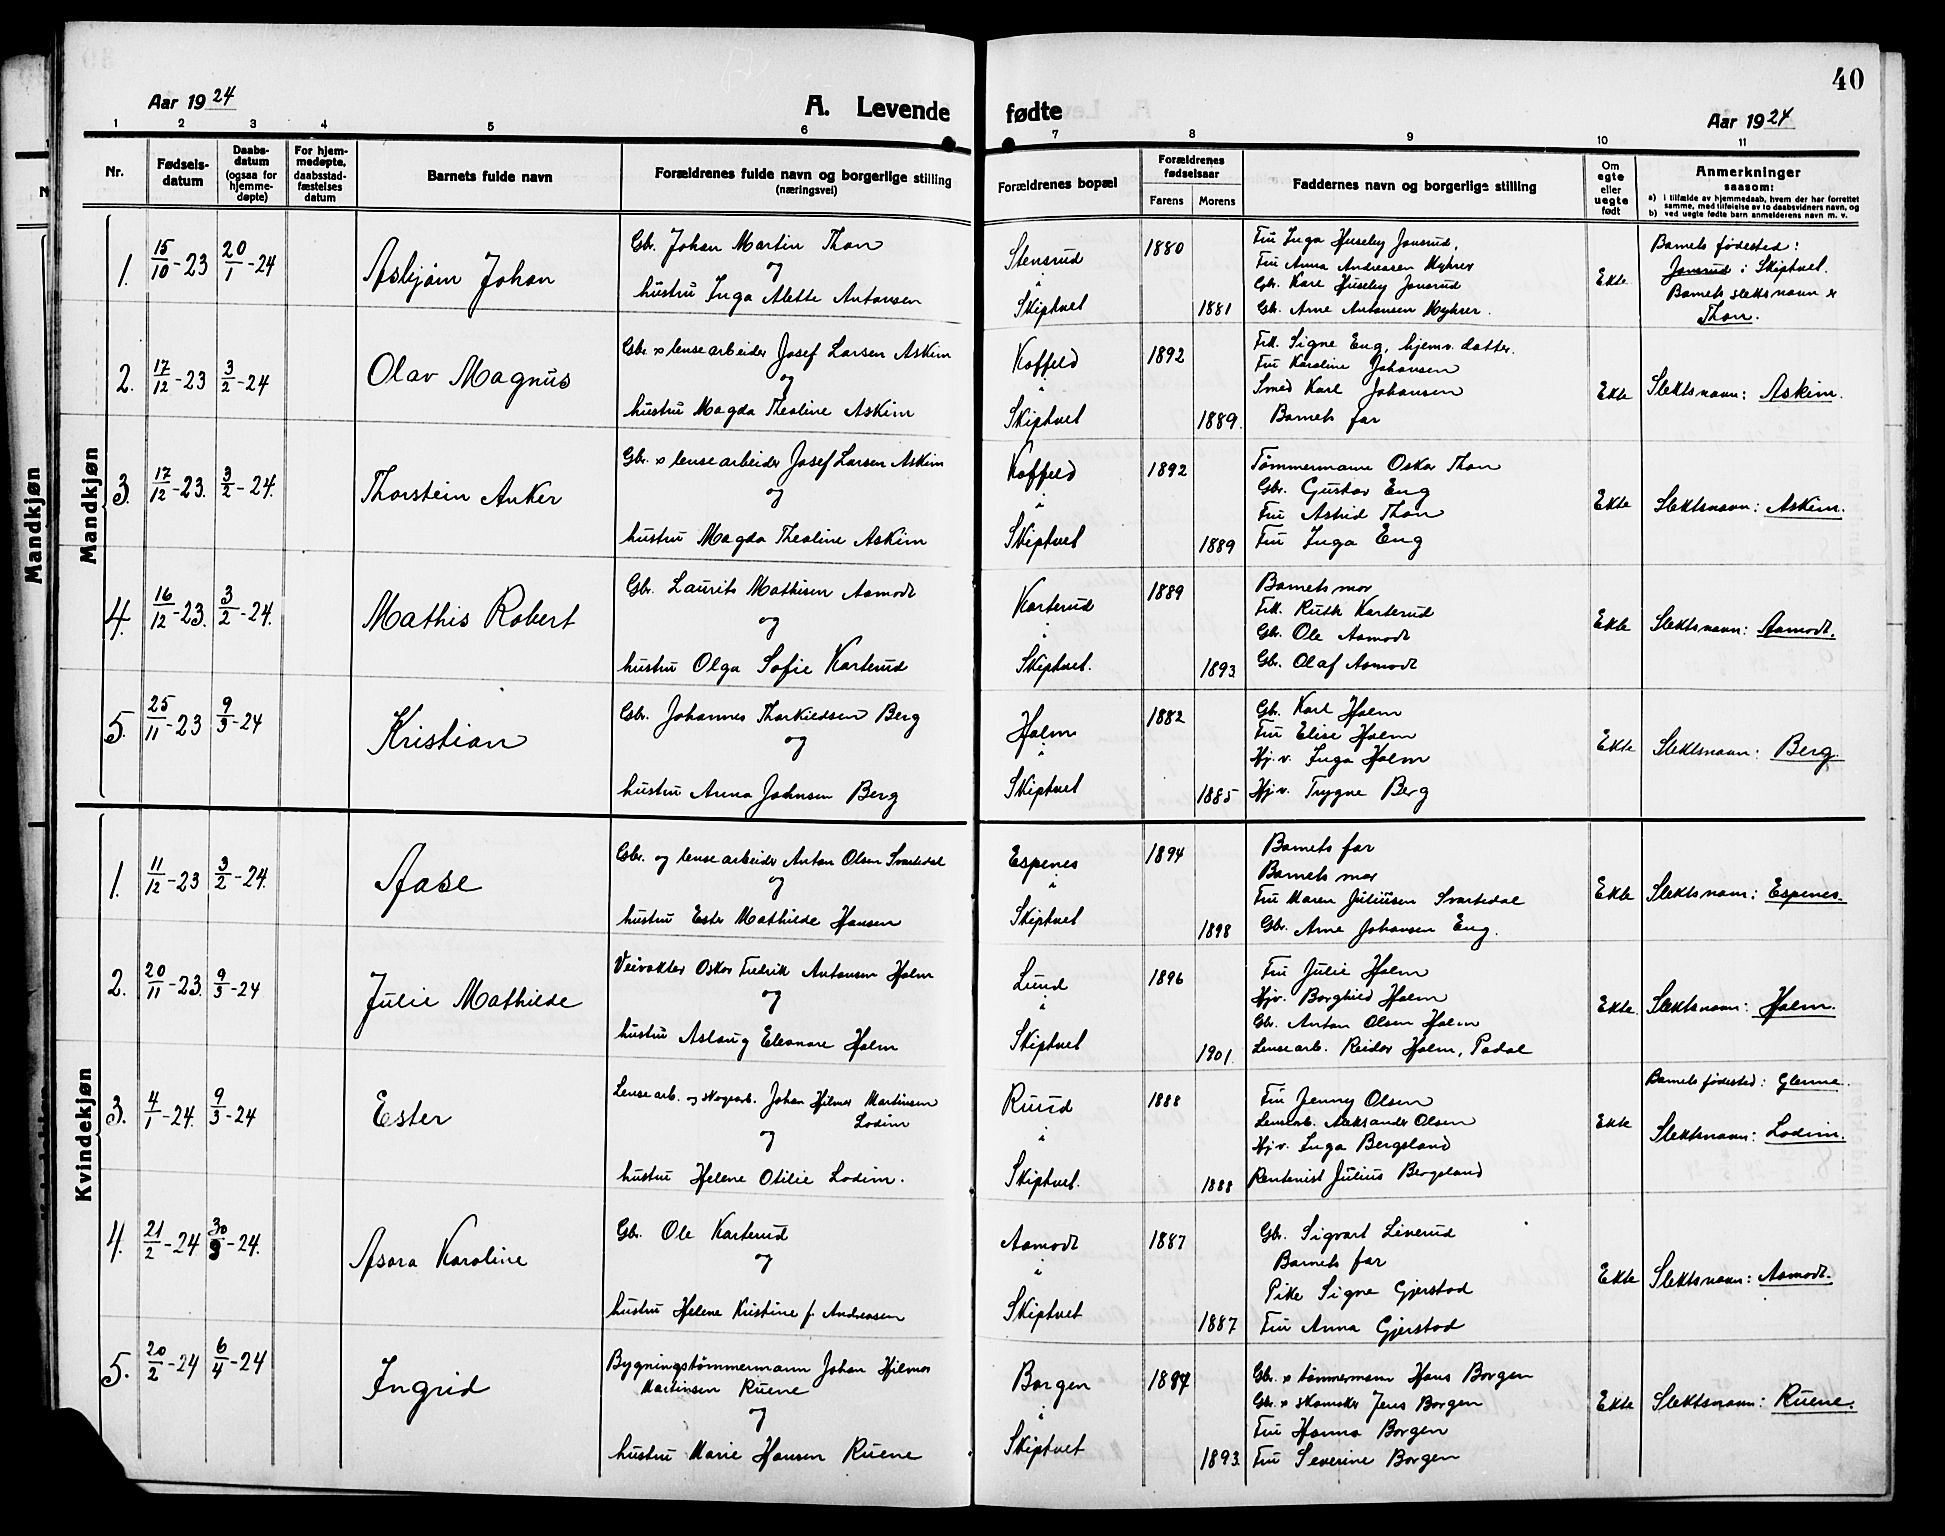 40
Aar 1924
A. Levende fødte
Aar 1924
1 2 3 4 5 6 7 8 9 10 11
Nr.
Fødsels-
datum
Daabs-
datum
(ogsaa for
hjemme-
døpte)
For hjem-
medøpte,
daabsstad-
fæstelses
datum
Barnets fulde navn
Forældrenes fulde navn og borgerlige stilling
(næringsvei)
Forældrenes bopæl
Forældrenes
fødselsaar
Farens Morens
Faddernes navn og borgerlige stilling
Om
egte
eller
uegte
født
Anmerkninger
saasom:
a) i tilfælde av hjemmedaab, hvem der har forrettet
samme, med tilføielse av to daabsvidners navn, og
b) ved uegte fødte barn anmelderens navn m. v.
Mandkjøn
Mandkjøn
1. 15/10-23 20/1-24 Asbjørn Johan
Gbr. Johan Martin Thon
og
hustru Inga Alette Antonsen
Stensrud
i
Skiptvet
1880
1881
Fru Inga Huseby Jonsrud,
Fru Anna Andreasen Myhrer
Gbr. Karl Huseby Jonsrud
Gbr. Arne Antonsen Myhrer.
Ekte
Barnets fødested:
Jonsrud i Skiptvet.
Barnets slektsnavn er
Thon.
2. 17/12-23 3/2-24 Olav Magnus
Gbr. & lensearbeider Josef Larsen Askim
og
hustru Magda Thealine Askim
Koffeld
i
Skiptvet
1892
1889.
Frk. Signe Eng, hjemv. datter.
Fru Karoline Johansen
Smed Karl Johansen
Barnets far
Ekte
Slektsnavn: Askim.
3. 17/12-23. 3/2-24. Thorstein Anker
Gbr. & lensearbeider Josef Larsen Askim
og
hustru Magda Thealine Askim
Koffeld
i
Skiptvet
1892
1889
Tømmermann Oskar Thon
Gbr. Gustav Eng
Fru Astrid Thon
Fru Inga Eng
Ekte
Slektsnavn: Askim.
4. 16/12-23. 3/2-24. Mathis Robert
Gbr. Laurits Mathisen Aamodt
og
hustru Olga Sofie Karterud
Karterud
i
Skiptvet.
1889
1893
Barnets mor
Frk. Ruth Karterud
Gbr. Ole Aamodt
Gbr. Olaf Aamodt
Ekte
Slektsnavn: Aamodt.
5. 25/11-23 9/3-24 Kristian
Gbr. Johannes Thorkildsen Berg
og
hustru Anna Johnsen Berg
Holm
i
Skiptvet
1882
1885
Gbr. Karl Holm
Fru Elise Holm
Hj.v. Inga Holm
Hjv. Trygve Berg
Ekte
Slektsnavn: Berg
Kvindekjøn
1. 11/12-23 3/2-24. Aase
Gbr. og lensearbeider Anton Olsen Svartedal
og
hustru Ester Mathilde Hansen
Espenes
i
Skiptvet
1894
1898
Barnets far
Barnets mor
Fru Maren Juliusen Svartedal
Gbr. Arne Johansen Eng.
Ekte
Slektsnavn: Espenes.
2. 20/11-23. 9/3-24 Julie Mathilde
Veivokter Oskar Fredrik Antonsen Holm
og
hustru Aslaug Eleonore Holm
Lund
i
Skiptvet
1896
1901
Fru Julie Holm
Hjv. Borghild Holm
Gbr. Anton Olsen Holm
Lensearb. Reidar Holm,
Ekte
Slektsnavn: Holm.
3. 4/1-24. 9/3-24 Ester
Lensearb. og skogarb. Johan Hilmar Martinsen
Lodim
og
hustru Helene Otilie Lodim.
Ruud
i
Skiptvet.
1888
1888
Fru Jenny Olsen
Lensearb. Aleksander Olsen
Hjv. Inga Bergsland
Rentenist Julius Bergsland
Ekte
Barnets fødested: Glenne.
Slektsnavn: Lodim.
4. 21/2-24 30/3-24. Asora Karoline
Gbr. Ole Karterud
og
hustru Helene Kristine f. Andreasen
Aamodt
i
Skiptvet
1887
1887
Gbr. Sigvart Linerud
Barnets far
Pike Signe Gjerstad
Fru Anna Gjerstad
Ekte
Slektsnavn: Aamodt.
5. 20/2-24 6/4-24 Ingrid
Bygningstømmermann Johan Hilmar
Martinsen Ruene
og
hustru Marie Hansen Ruene
Borgen
i
Skiptvet
1893
Gbr. & tømmermann Hans Borgen
Gbr. & skomaker Jens Borgen
Fru Hanna Borgen
Fru Severine Borgen
Ekte
Slektsnavn: Ruene.